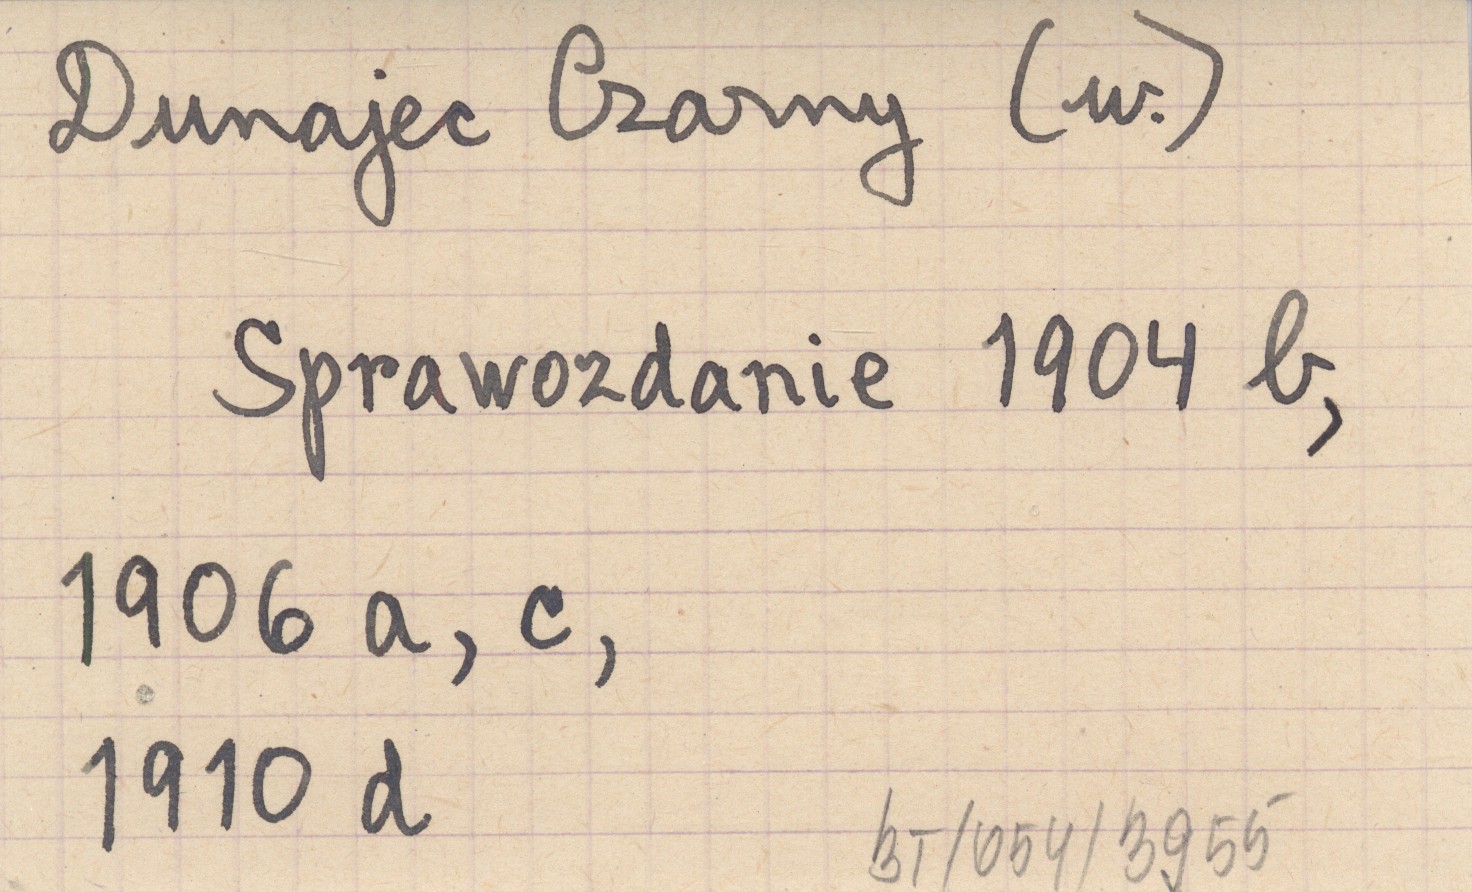 Dunajec Czarny (w.)
Sprawozdanie 1904 b,
1906 a, c,
1910 d
BT/054/3955